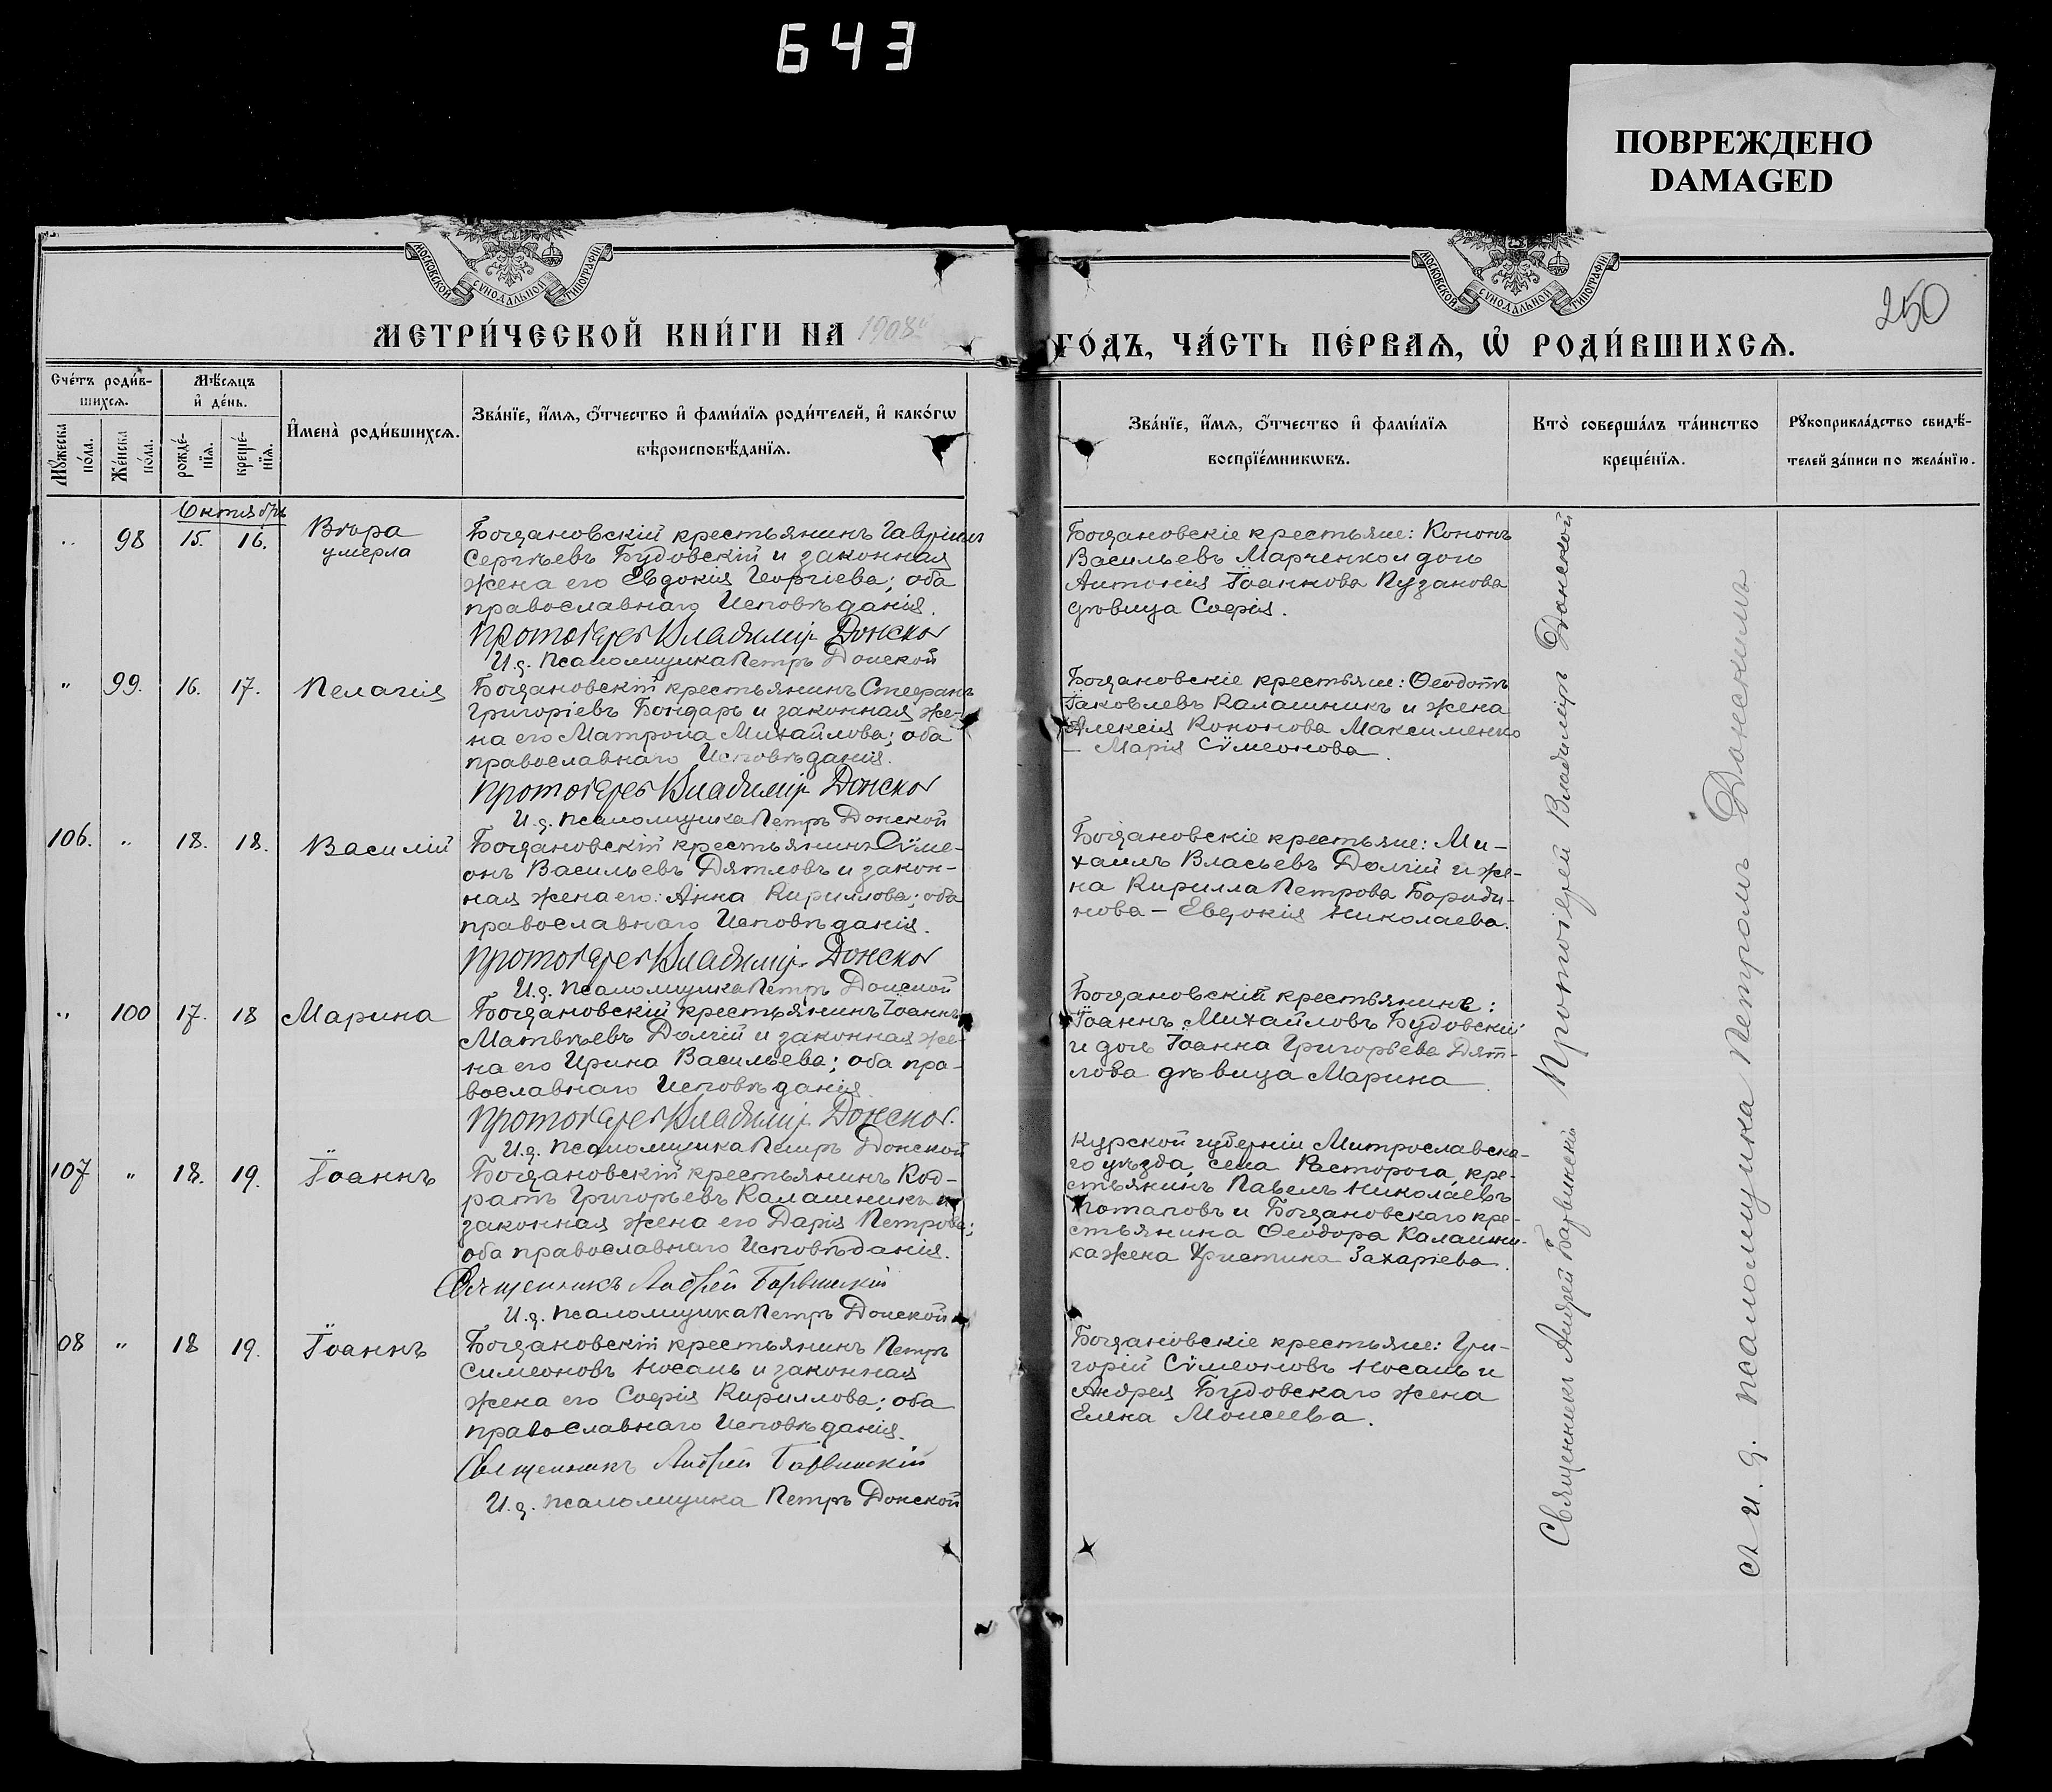 643
ПОВРЕЖДЕНО
DAMAGED
МОСКОВСКОЙ СѴНОДАЛЬНОЙ ТИПОГРАФІИ
МОСКОВСКОЙ СѴНОДАЛЬНОЙ ТИПОГРАФІИ
250
МЕТРИ́ЧЕСКОЙ КНИ́ГИ НА 1908й
ГО́ДЪ, ЧА́СТЬ ПЕ́РВАѦ, Ѡ҆ РОДИ́ВШИХСѦ.
Сче́тъ роди́в-
шихсѧ.
Мꙋжеска
по́ла.
Же́нска
по́ла.
Мѣ́сѧцъ
и҆ де́нь.
рожде́-
нїѧ.
креще́-
нїѧ.
И҆мена̀ роди́вшихсѧ.
Зва́нїе, и҆́мѧ, ѻ҆́тчество и҆ фами́лїѧ роди́телей, и҆ како́гѡ
вѣроисповѣ́данїѧ.
Зва́нїе, и҆́мѧ, ѻ҆́тчество и҆ фами́лїѧ
воспрїе́мникѡвъ.
Кто̀ соверша́лъ та́инство
креще́нїѧ.
Рꙋкоприкла́дство свидѣ́-
телей за́писи по жела́нїю.
Октябрь
" 98 15. 16. Вѣра
умерла
Богдановскій крестьянинъ Гавріилъ
Сергѣевъ Будовскій и законная
жена его Евдокія Георгіева; оба
православнаго Исповѣданія.
Протоіерей Владиміръ Донской
И.д. псаломщика Петръ Донской
Богдановскіе крестьяне: Кононъ
Васильевъ Марченко и дочь
Антонія Іоаннова Пузанова
дѣвица Софія.
" 99. 16. 17. Пелагія
Богдановскій крестьянинъ Стефанъ
Григоріевъ Бондарь и законная же-
на его Матрона Михайлова; оба
православнаго Исповѣданія.
Протоіерей Владиміръ Донской
И.д. псаломщика Петръ Донской
Богдановскіе крестьяне: Ѳеодотъ
Іаковлевъ Калашникъ и жена
Алексія Кононова Максименко
— Марія Сѵмеонова.
106. " 18. 18. Василій
Богдановскій крестьянинъ Сѵме-
онъ Васильевъ Дятловъ и закон-
ная жена его: Анна Кириллова; оба
православнаго Исповѣданія.
Протоіерей Владиміръ Донской
И.д. псаломщика Петръ Донской
Богдановскіе крестьяне: Ми-
хаилъ Власьевъ Долгій и же-
на Кирилла Петрова Бороди-
нова — Евдокія Николаева.
" 100 17. 18 Марина
Богдановскій крестьянинъ Іоаннъ
Матвѣевъ Долгій и законная же-
на его Ирина Васильева; оба пра-
вославнаго Исповѣданія
Протоіерей Владиміръ Донской.
И.д. псаломщика Петръ Донской
Богдановскій крестьянинъ:
Іоаннъ Михайловъ Будовскій
и дочь Іоанна Григорьева Дят-
лова дѣвица Марина.
107 " 18. 19. Іоаннъ
Богдановскій крестьянинъ Код-
ратъ Григорьевъ Калашникъ и
законная жена его Дарія Петрова;
оба православнаго Исповѣданія.
Священникъ Андрей Барвинскій
И.д. псаломщика Петръ Донской
Курской губерніи Митрославска-
го уѣзда, села Расторога, кре-
стьянинъ Павелъ Николаевъ
Потаповъ и Богдановскаго кре-
стьянина Ѳеодора Калашни-
ка жена Христина Захаріева.
08 " 18 19. Іоаннъ
Богдановскій крестьянинъ Петръ
Симеоновъ Носань и законная
жена его Софія Кириллова; оба
православнаго Исповѣданія.
Священникъ Андрей Барвинскій
И.д. псаломщика Петръ Донской
Богдановскіе крестьяне: Гри-
горій Сѵмеоновъ Носань и
Андрея Будовскаго жена
Елена Моисеева.
Священникъ Андрей Барвинскій Протоіерей Владиміръ Донской
съ и. д. псаломщика Петромъ Донскимъ